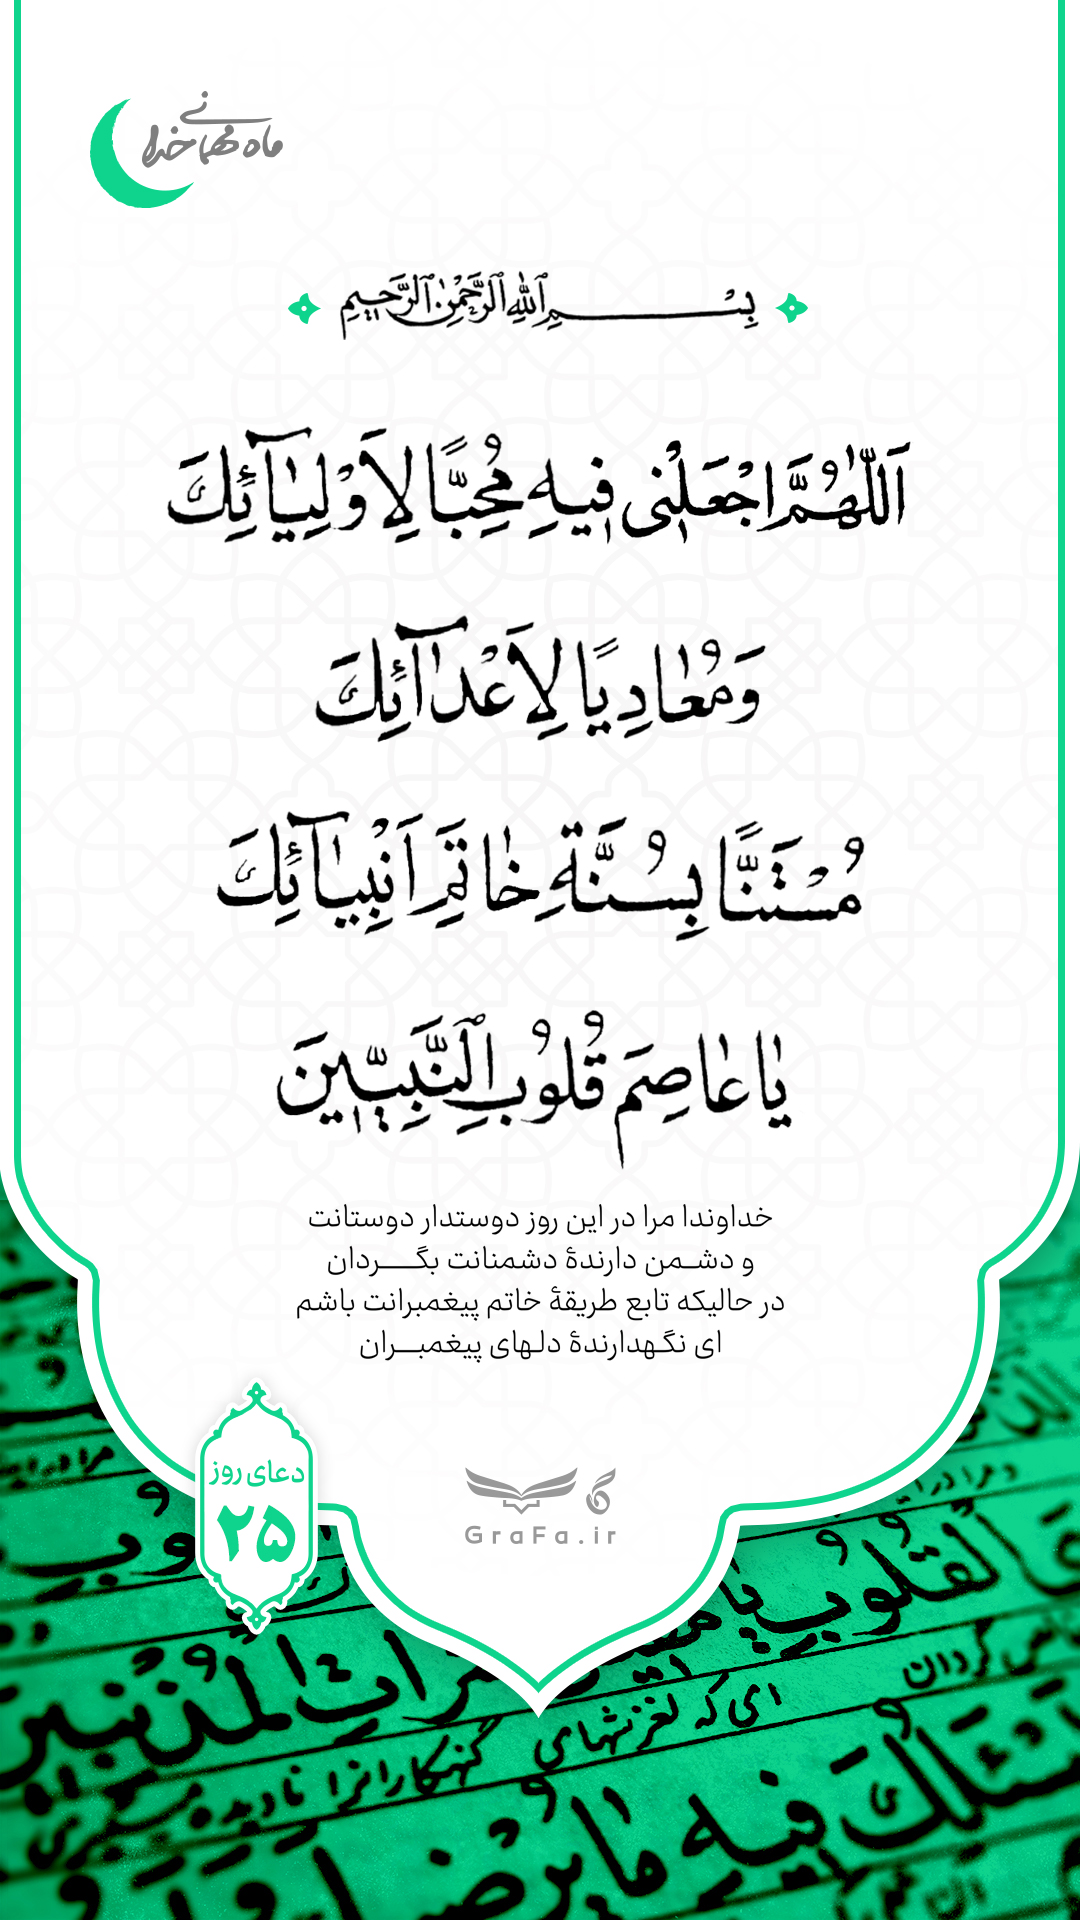 ماه مهمانی خدا
بِسْمِ ٱللّٰهِ ٱلرَّحْمٰنِ ٱلرَّحِیمِ
اَللّٰهُمَّ اجْعَلْنی فیهِ مُحِبًّا لِاَوْلِیٰآئِكَ
وَمُعٰادِیًا لِاَعْدٰآئِكَ
مُسْتَنًّا بِسُنَّةِ خٰاتَمِ اَنْبِیٰآئِكَ
یٰا عٰاصِمَ قُلُوبِ ٱلنَّبِیّینَ
خداوندا مرا در این روز دوستدار دوستانت
و دشـمن دارندهٔ دشمنانت بگــــردان
در حالیکه تابع طریقهٔ خاتم پیغمبرانت باشم
ای نگـهدارندهٔ دلـهای پیغمبـــران
دعای روز
۲۵
GraFa.ir
الْقُلُوبِ یٰا
الْمُذْنِبینَ
ای که لغزشهای
گنهکارانرا نادیده
فیهِ مٰا